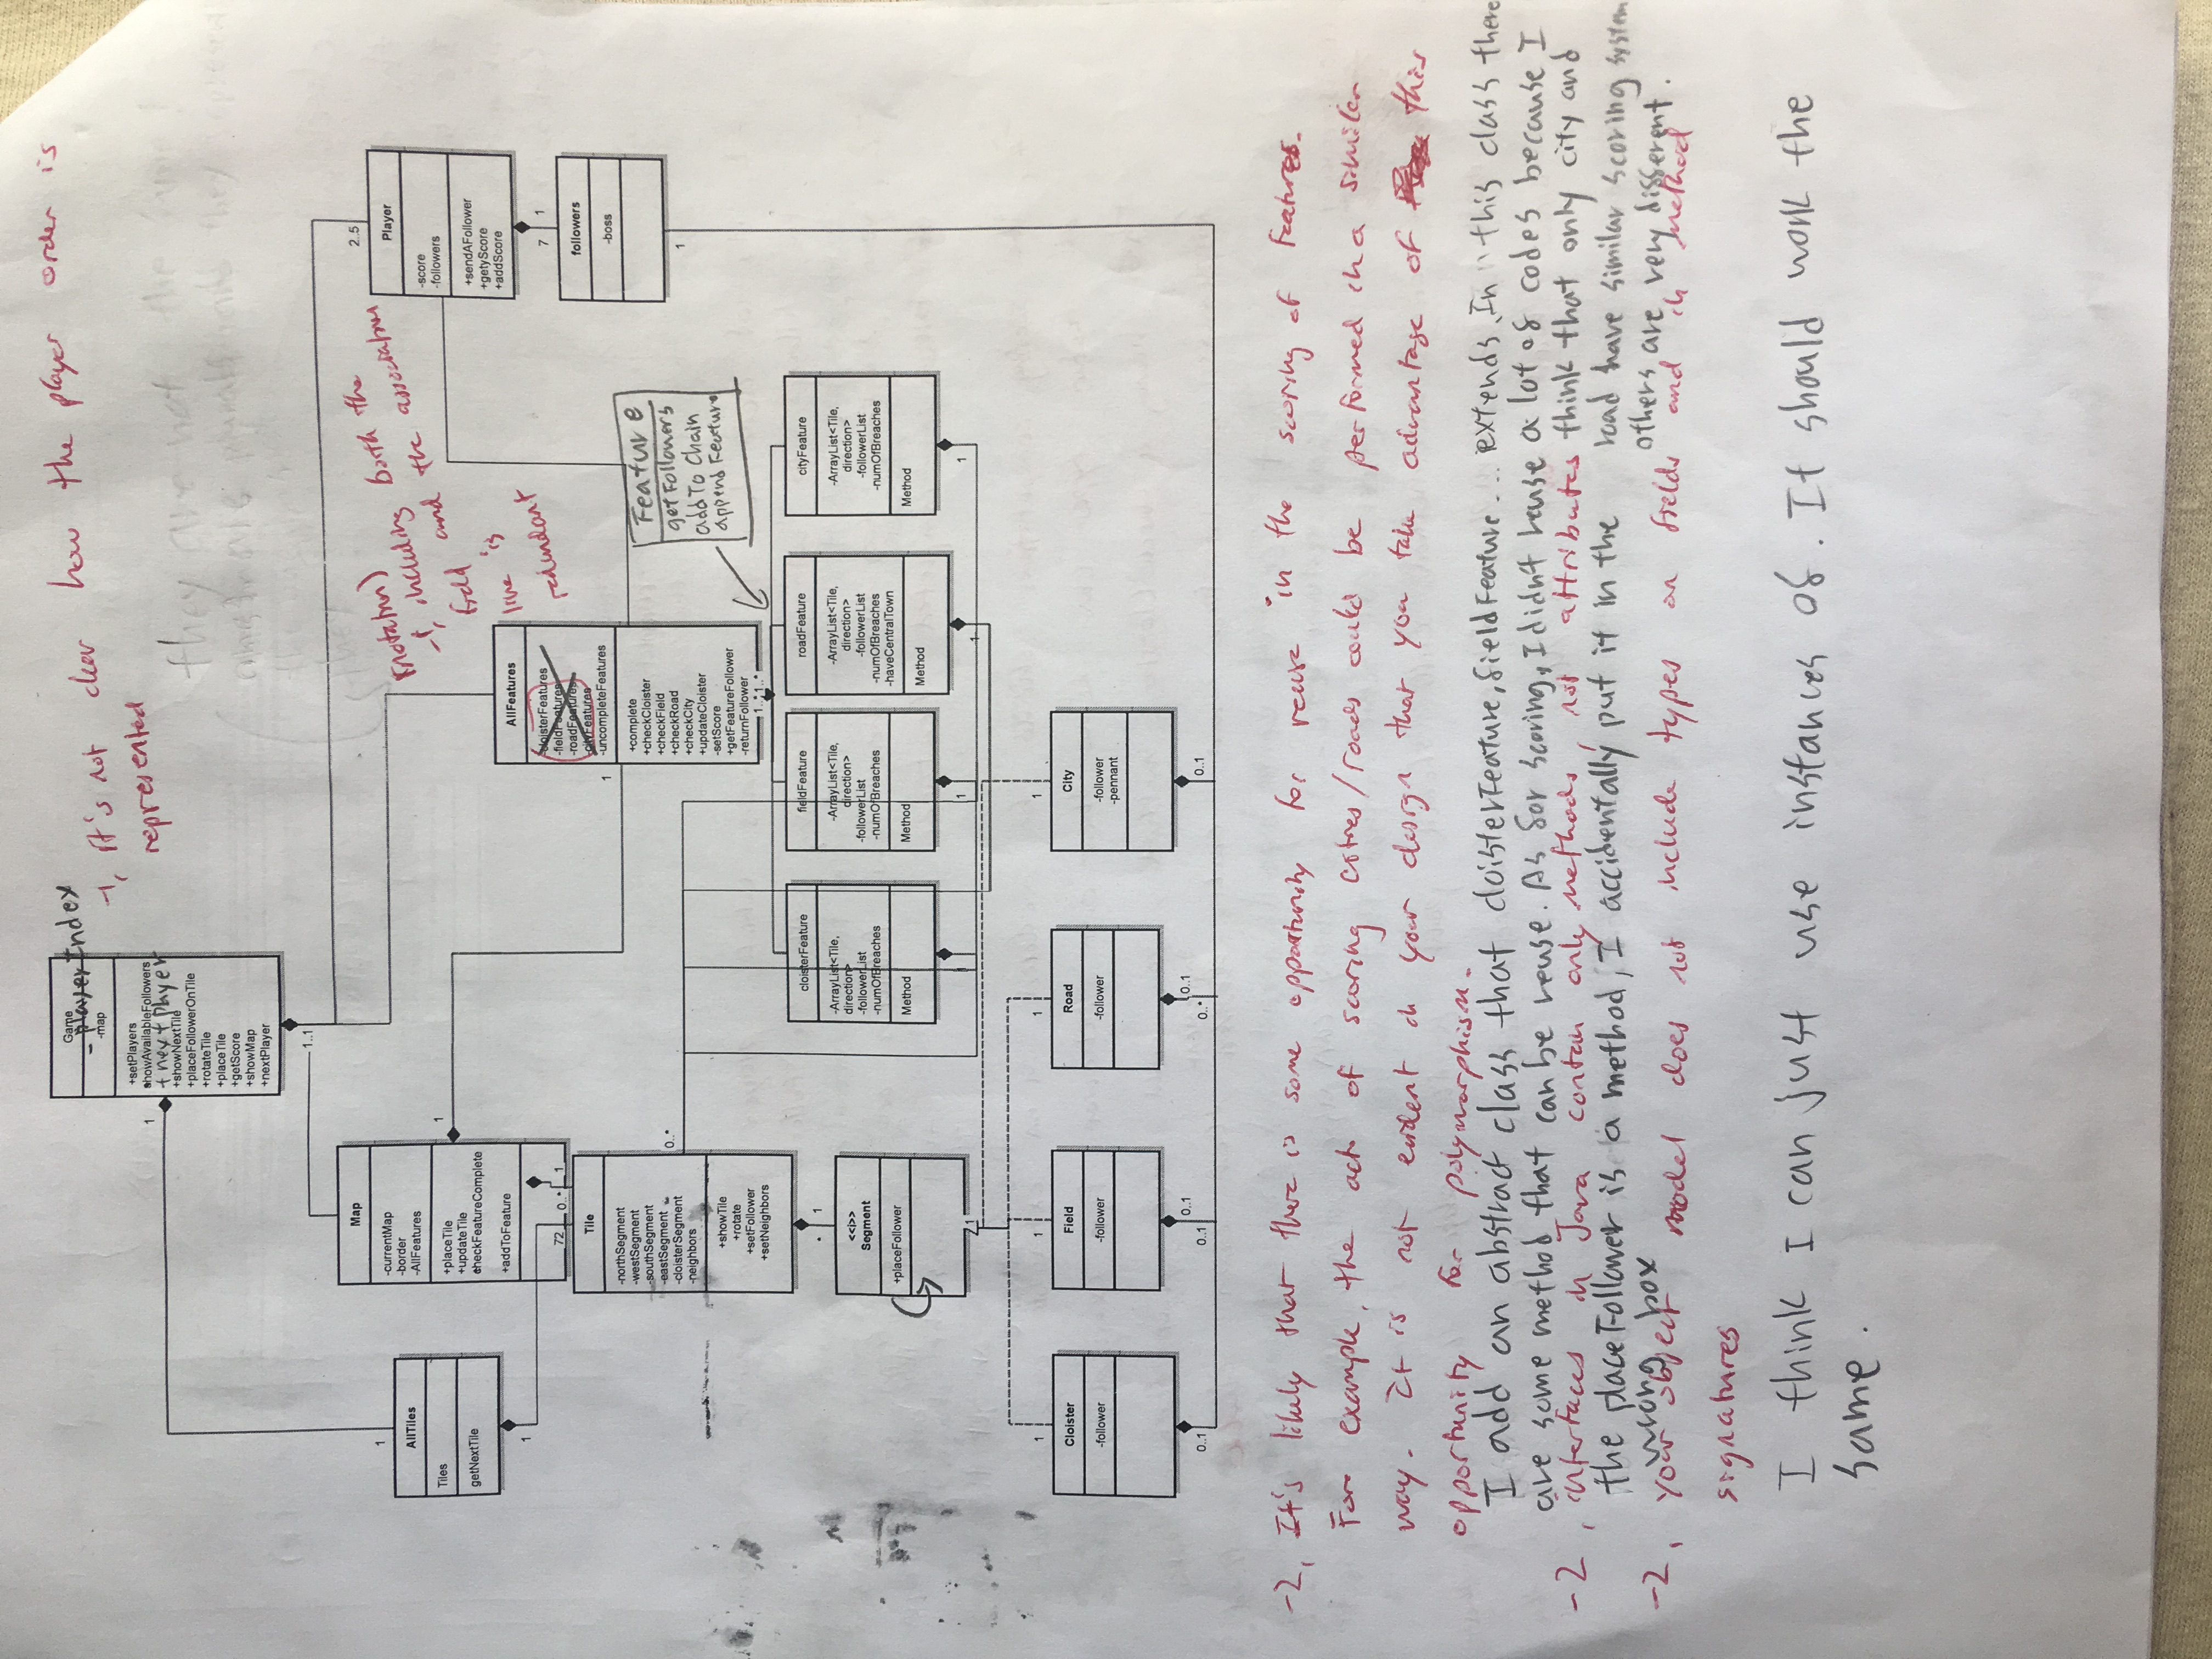 Game
- playerIndex
-map
+setPlayers
showAvailableFollowers
+ nextplayer
+showNextTile
+placeFollowerOnTile
+rotateTile
+placeTile
+getScore
+showMap
+nextPlayer
-1, it's not clear how the player order is
represented
they are not the
1
1..1
2..5
1
Map
-currentMap
-border
-AllFeatures
+placeTile
+updateTile
checkFeatureComplete
+addToFeature
1
AllTiles
Tiles
getNextTile
1
72
0..*
1
(notation)
-1, including both the
field and the association
line is
redundant
Player
-score
-followers
+sendAFollower
+getyScore
+addScore
7
1
followers
-boss
1
AllFeatures
-cloisterFeatures
-fieldFeatures
-roadFeatures
-cityFeatures
-uncompleteFeatures
1
+complete
+checkCloister
+checkField
+checkRoad
+checkCity
+updateCloister
-setScore
+getFeatureFollower
-returnFollower
1..*1..*
Feature
getFollowers
addTo Chain
append Feature
Tile
-northSegment
-westSegment
-southSegment
-eastSegment
-cloisterSegment
-neighbors
0..*
+showTile
+rotate
+setFollower
+setNeighbors
*
1
<<i>>
Segment
+placeFollower
1
cloisterFeature
-ArrayList<Tile,
direction>
-followerList
-numOfBreaches
Method
fieldFeature
-ArrayList<Tile,
direction>
-followerList
-numOfBreaches
Method
1
roadFeature
-ArrayList<Tile,
direction>
-followerList
-numOfBreaches
-haveCentralTown
Method
1
cityFeature
-ArrayList<Tile,
direction>
-followerList
-numOfBreaches
Method
1
1
Cloister
-follower
0..1
1
Field
-follower
0..1
0..1
1
Road
-follower
0..1
0..*
1
City
-follower
-pennant
0..1
-2, It's likely that there is some opportunity for reuse in the scoring of features.
For example, the act of scoring cities/roads could be performed in a similar
way. It is not evident in your design that you take advantage of this
opportunity for polymorphism.
I add an abstract class that cloisterFeature, fieldFeature... extends. In this class there
are some method that can be reuse. As for scoring, I didn't reuse a lot of codes because I
think that only city and
road have similar scoring system
others are very different.
-2, interfaces in Java contain only methods, not attributes
the placeFollower is a method, I accidentally put it in the
wrong box
-2, your object model does not include types on fields and in method
signatures
I think I can just use instances of. It should work the
same.